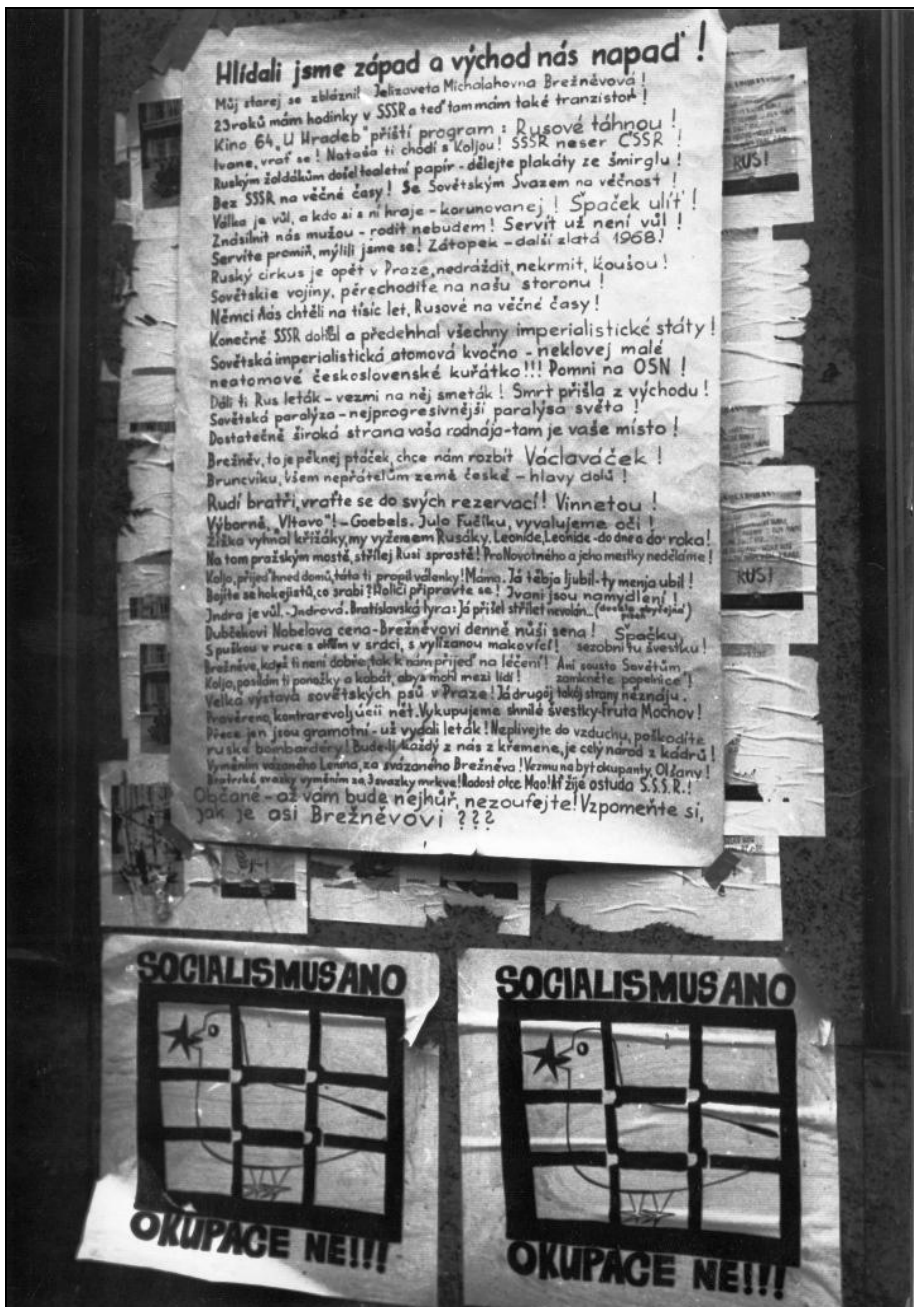 Hlídali jsme západ a východ nás napad' !
Můj starej se zbláznil Jelizaveta Michalahovna Brežněvová !
23 roků mám hodinky v SSSR a teď tam mám také tranzistor !
Kino 64 „U Hradeb" příští program : Rusové táhnou !
Ivane, vrať se ! Nataša ti chodí s Koljou ! SSSR neser ČSSR !
Ruským žoldákům došel toaletní papír - dělejte plakáty ze šmirglu !
Bez SSSR na věčné časy ! Se Sovětským Svazem na věčnost !
Válka je vůl, a kdo si s ní hraje - korunovanej ! Špaček ulít' !
Znásilnit nás mužou - rodit nebudem ! Servít už není vůl !
Servíte promiň, mýlili jsme se ! Zátopek - další zlatá 1968 !
Ruský cirkus je opět v Praze, nedráždit, nekrmit, koušou !
Sovětskie vojiny, pérechodite na našu storonu !
Němci nás chtěli na tisíc let, Rusové na věčné časy !
Konečně SSSR dohnal a předehnal všechny imperialistické státy !
Sovětská imperialistická atomová kvočno - neklovej malé
neatomové československé kuřátko !!! Pomni na OSN !
Dáli ti Rus leták - vezmi na něj smeták ! Smrt přišla z východu !
Sovětská paralýza - nejprogresivnější paralýsa světa !
Dostatečně široká strana vaša rodnája - tam je vaše místo !
Brežněv, to je pěknej ptáček, chce nám rozbít Václaváček !
Bruncvíku, všem nepřátelům země české - hlavy dolů !
Rudí bratři, vraťte se do svých rezervací ! Vinnetou !
Výborně, „Vltavo" ! - Goebels. Julo Fučíku, vyvalujeme oči !
Žižka vyhnal křižáky, my vyženem Rusáky. Leonide, Leonide - do dne a do roka !
Na tom pražským mostě, střílej Rusi sprostě ! Pro Novotného a jeho mestky neděláme !
Koljo, přijeď ihned domů, táta ti propil válenky ! Máma. Já těbja ljubil - ty menja ubil !
Bojíte se hokejistů, co srabi ? Holiči připravte se ! Ivani jsou namydlení !
Indra je vůl. - Indrová. Bratislavská lyra : Já přišel střílet nevolán...
Dubčekovi Nobelova cena - Brežněvovi denně nůši sena ! Špačku,
S puškou v ruce s ohněm v srdci, s vylízanou makovicí ! sezobni tu švestku !
Brežněve, když ti není dobře, tak k nám přijeď na léčení ! Ani sousto Sovětům
Koljo, posílám ti ponožky a kabát, abys mohl mezi lidi ! zamkněte popelnice !
Velká výstava sovětských psů v Praze ! Já drugój takój strany něznáju.
Prověreno, kontrarevoljúcii nět. Vykupujeme shnilé švestky - Fruta Mochov !
Přece jen jsou gramotní - už vydali leták ! Neplivejte do vzduchu, poškodíte
ruské bombardéry ! Bude-li každý z nás z křemene, je celý národ z kádrů !
Vyměním vázaného Lenina, za svázaného Brežněva ! Vezmu na byt okupanty, Olšany !
Bratrské svazky vyměním za 3 svazky mrkve ! Radost otce Mao ! Ať žije ostuda S.S.S.R. !
Občané - až vám bude nejhůř, nezoufejte ! Vzpomeňte si,
jak je asi Brežněvovi ???
RUS!
RUS!
SOCIALISMUS ANO
OKUPACE NE!!!
SOCIALISMUS ANO
OKUPACE NE!!!